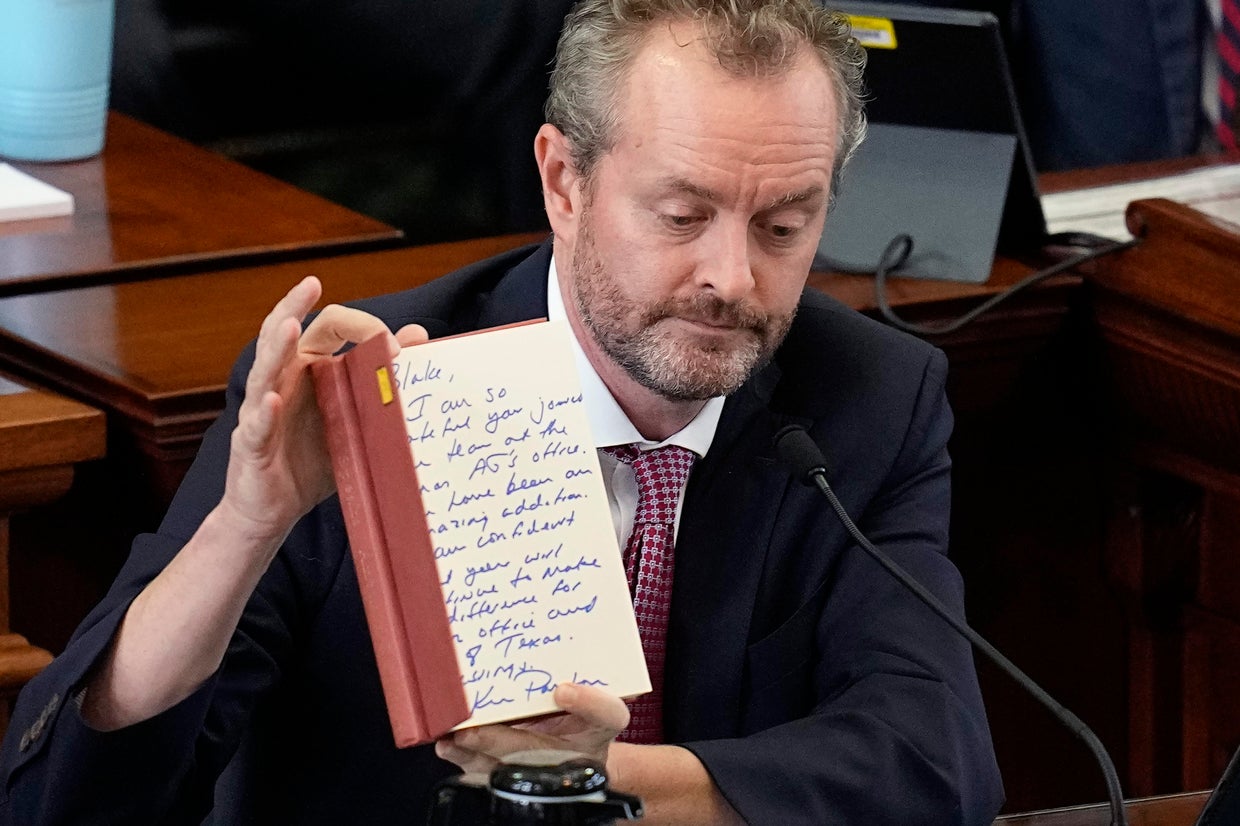 Blake,
I am so
ateful you joined
team at the
AG's office.
have been an
mazing addition.
am confident
year will
tinue to make
difference for
office and
of Texas.
Ken Paxton